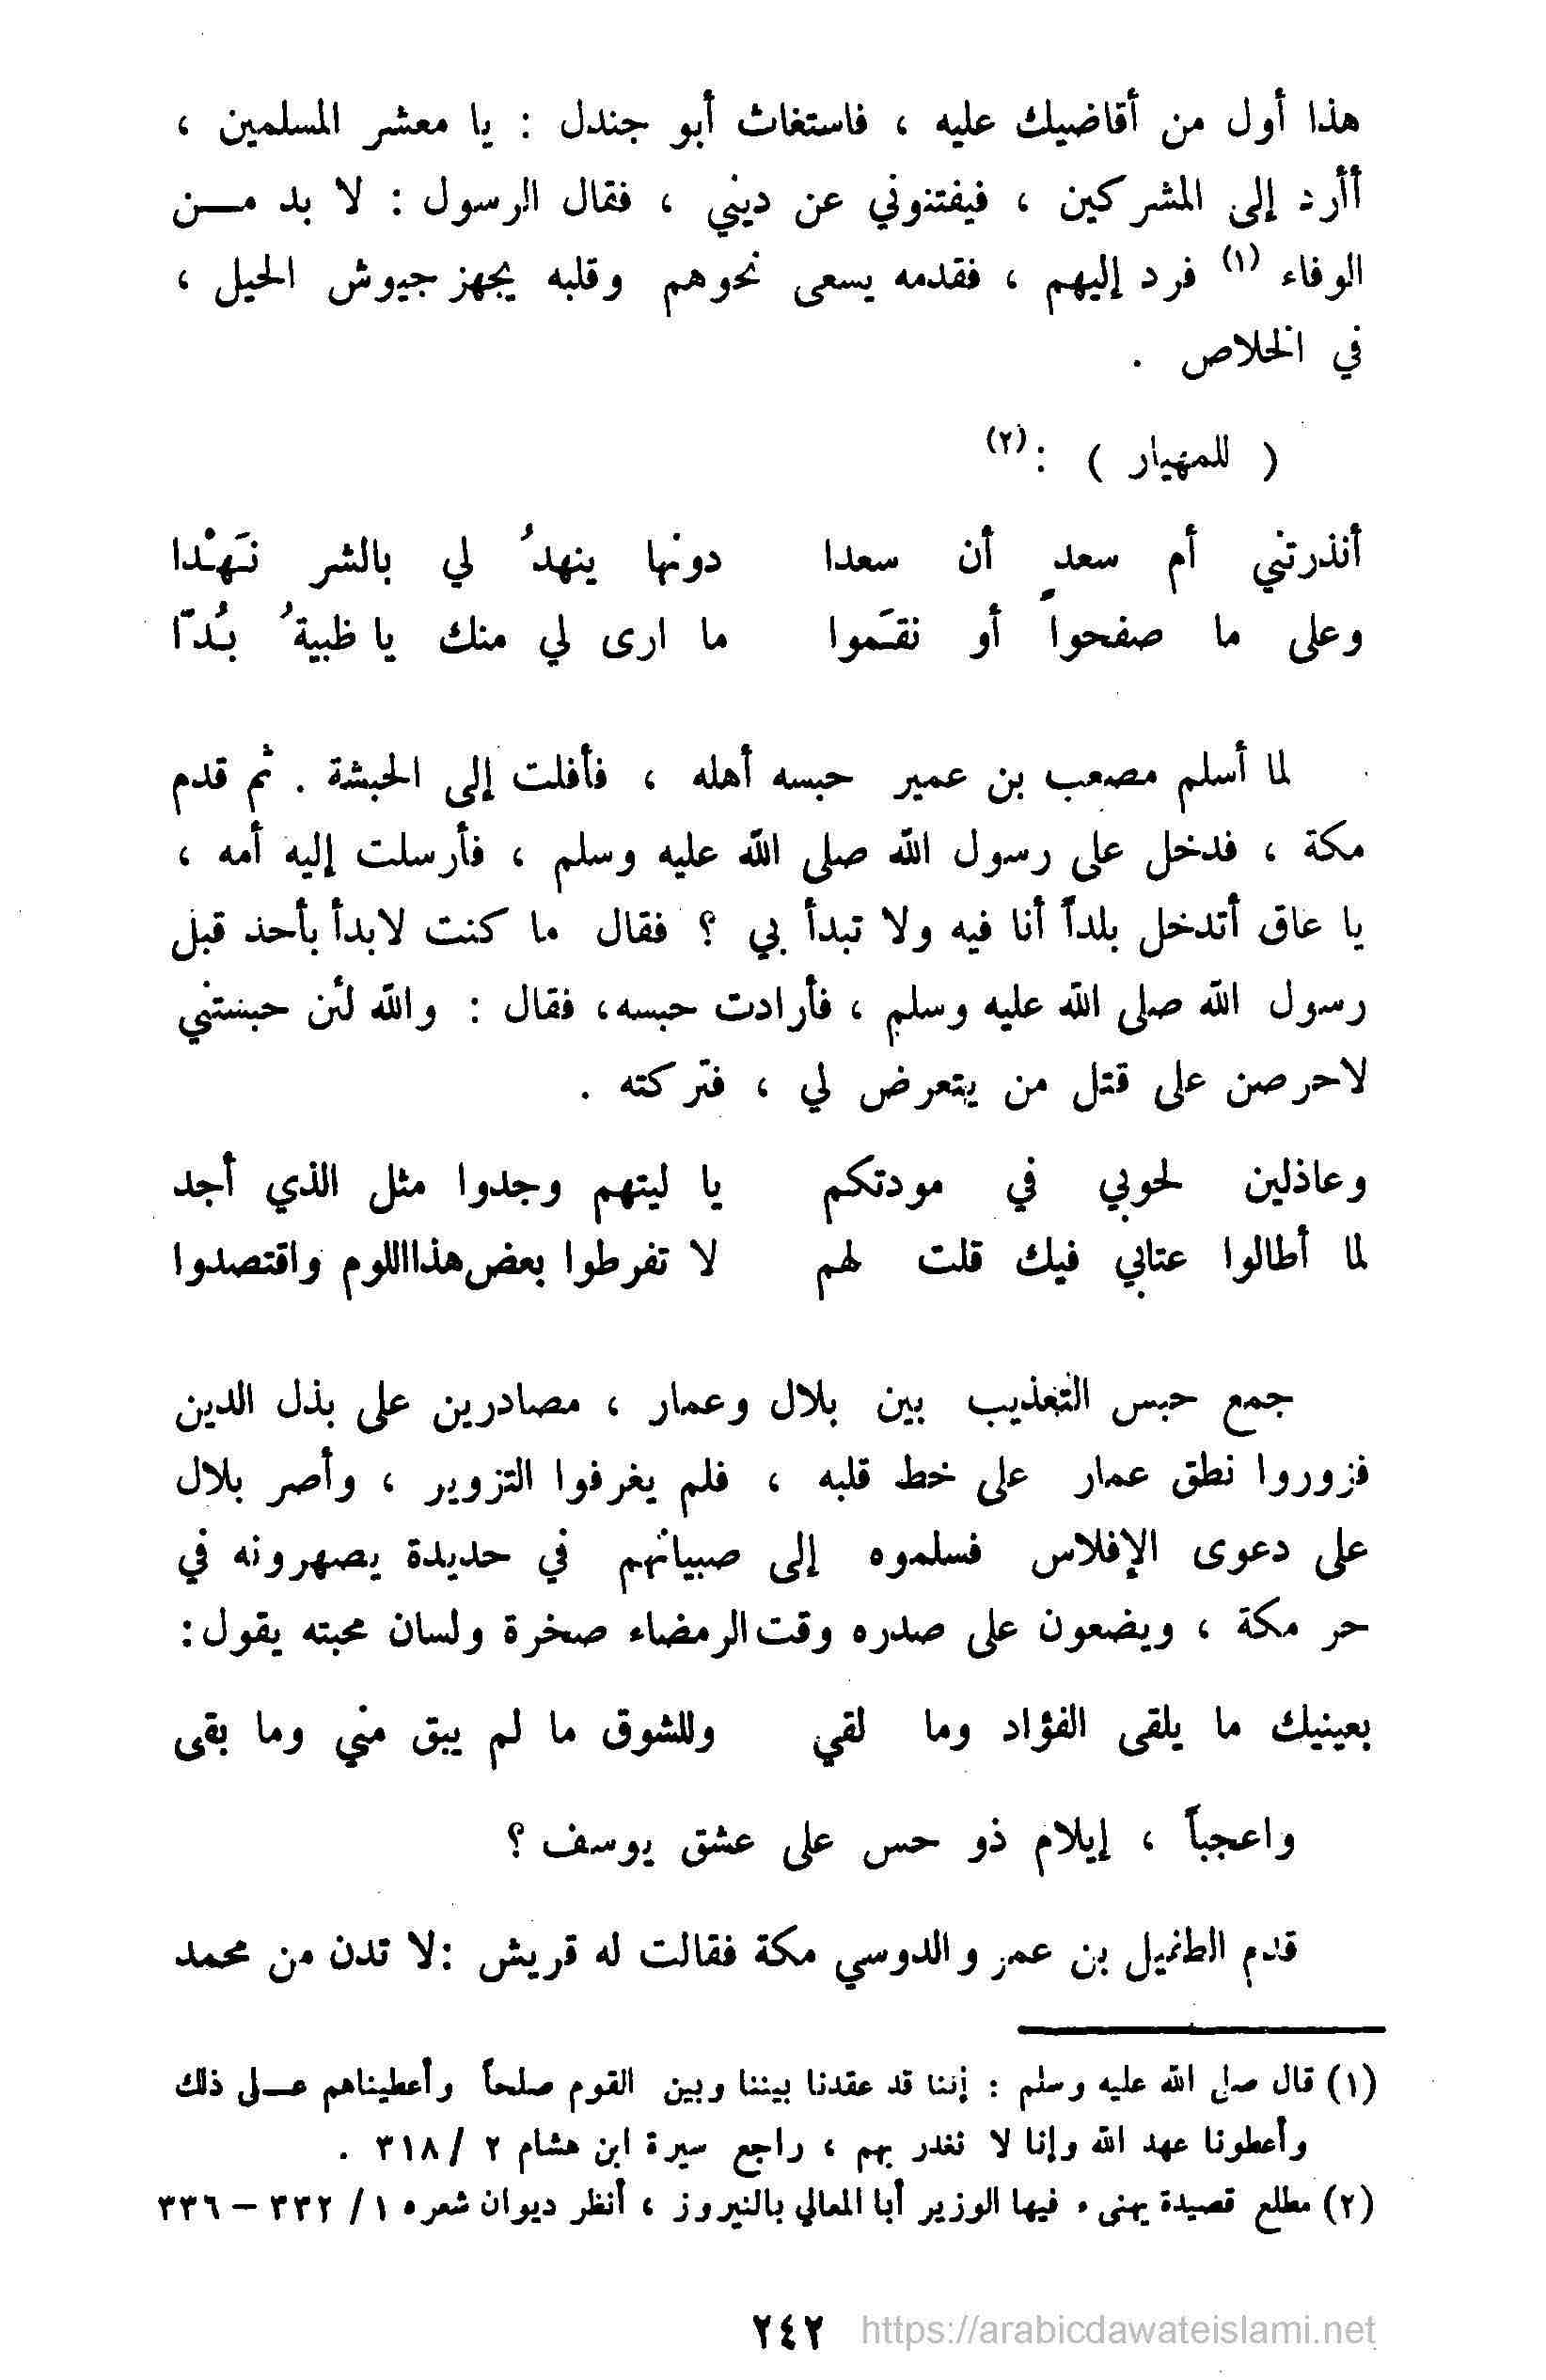 هذا أول من أقاضيك عليه ، فاستغاث أبو جندل : يا معشر المسلمين ،
أأرد إلى المشركين ، فيفتنوني عن ديني ، فقال الرسول : لا بد مـــن
الوفاء (١) فرد إليهم ، فقدمه يسعى نحوهم وقلبه يجهز جيوش الحيل ،
في الخلاص .
( للمهيار ) :(٢)
أنذرتني أم سعدٍ أن سعدا دونها ينهدُ لي بالشر نَهْدا
وعلى ما صفحوا أو نقَموا ما ارى لي منك يا ظبيةُ بُدّا
لما أسلم مصعب بن عمير حبسه أهله ، فأفلت إلى الحبشة . ثم قدم
مكة ، فدخل على رسول الله صلى الله عليه وسلم ، فأرسلت إليه أمه ،
يا عاق أتدخل بلداً أنا فيه ولا تبدأ بي ؟ فقال ما كنت لابدأ بأحد قبل
رسول الله صلى الله عليه وسلم ، فأرادت حبسه، فقال : والله لئن حبستني
لاحرصن على قتل من يتعرض لي ، فتركته .
وعاذلين لحوبي في مودتكم يا ليتهم وجدوا مثل الذي أجد
لما أطالوا عتابي فيك قلت لهم لا تفرطوا بعض هذا اللوم واقتصدوا
جمع حبس التعذيب بين بلال وعمار ، مصادرين على بذل الدين
فزوروا نطق عمار على خط قلبه ، فلم يغرفوا التزوير ، وأصر بلال
على دعوى الإفلاس فسلموه إلى صبيانهم في حديدة يصهرونه في
حر مكة ، ويضعون على صدره وقت الرمضاء صخرة ولسان محبته يقول:
بعينيك ما يلقى الفؤاد وما لقي وللشوق ما لم يبق مني وما بقى
واعجباً ، إيلام ذو حس على عشق يوسف ؟
قدم الطفيل بن عمر والدوسي مكة فقالت له قريش :لا تدن من محمد
(١) قال صلى الله عليه وسلم : إننا قد عقدنا بيننا وبين القوم صلحاً وأعطيناهم عــلى ذلك
وأعطونا عهد الله وإنا لا نغدر بهم ، راجع سيرة ابن هشام ٢ /٣١٨ .
(٢) مطلع قصيدة يهنىء فيها الوزير أبا المعالي بالنيروز ، أنظر ديوان شعره ١ / ٣٣٢ – ٣٣٦
٢٤٢ https://arabicdawateislami.net